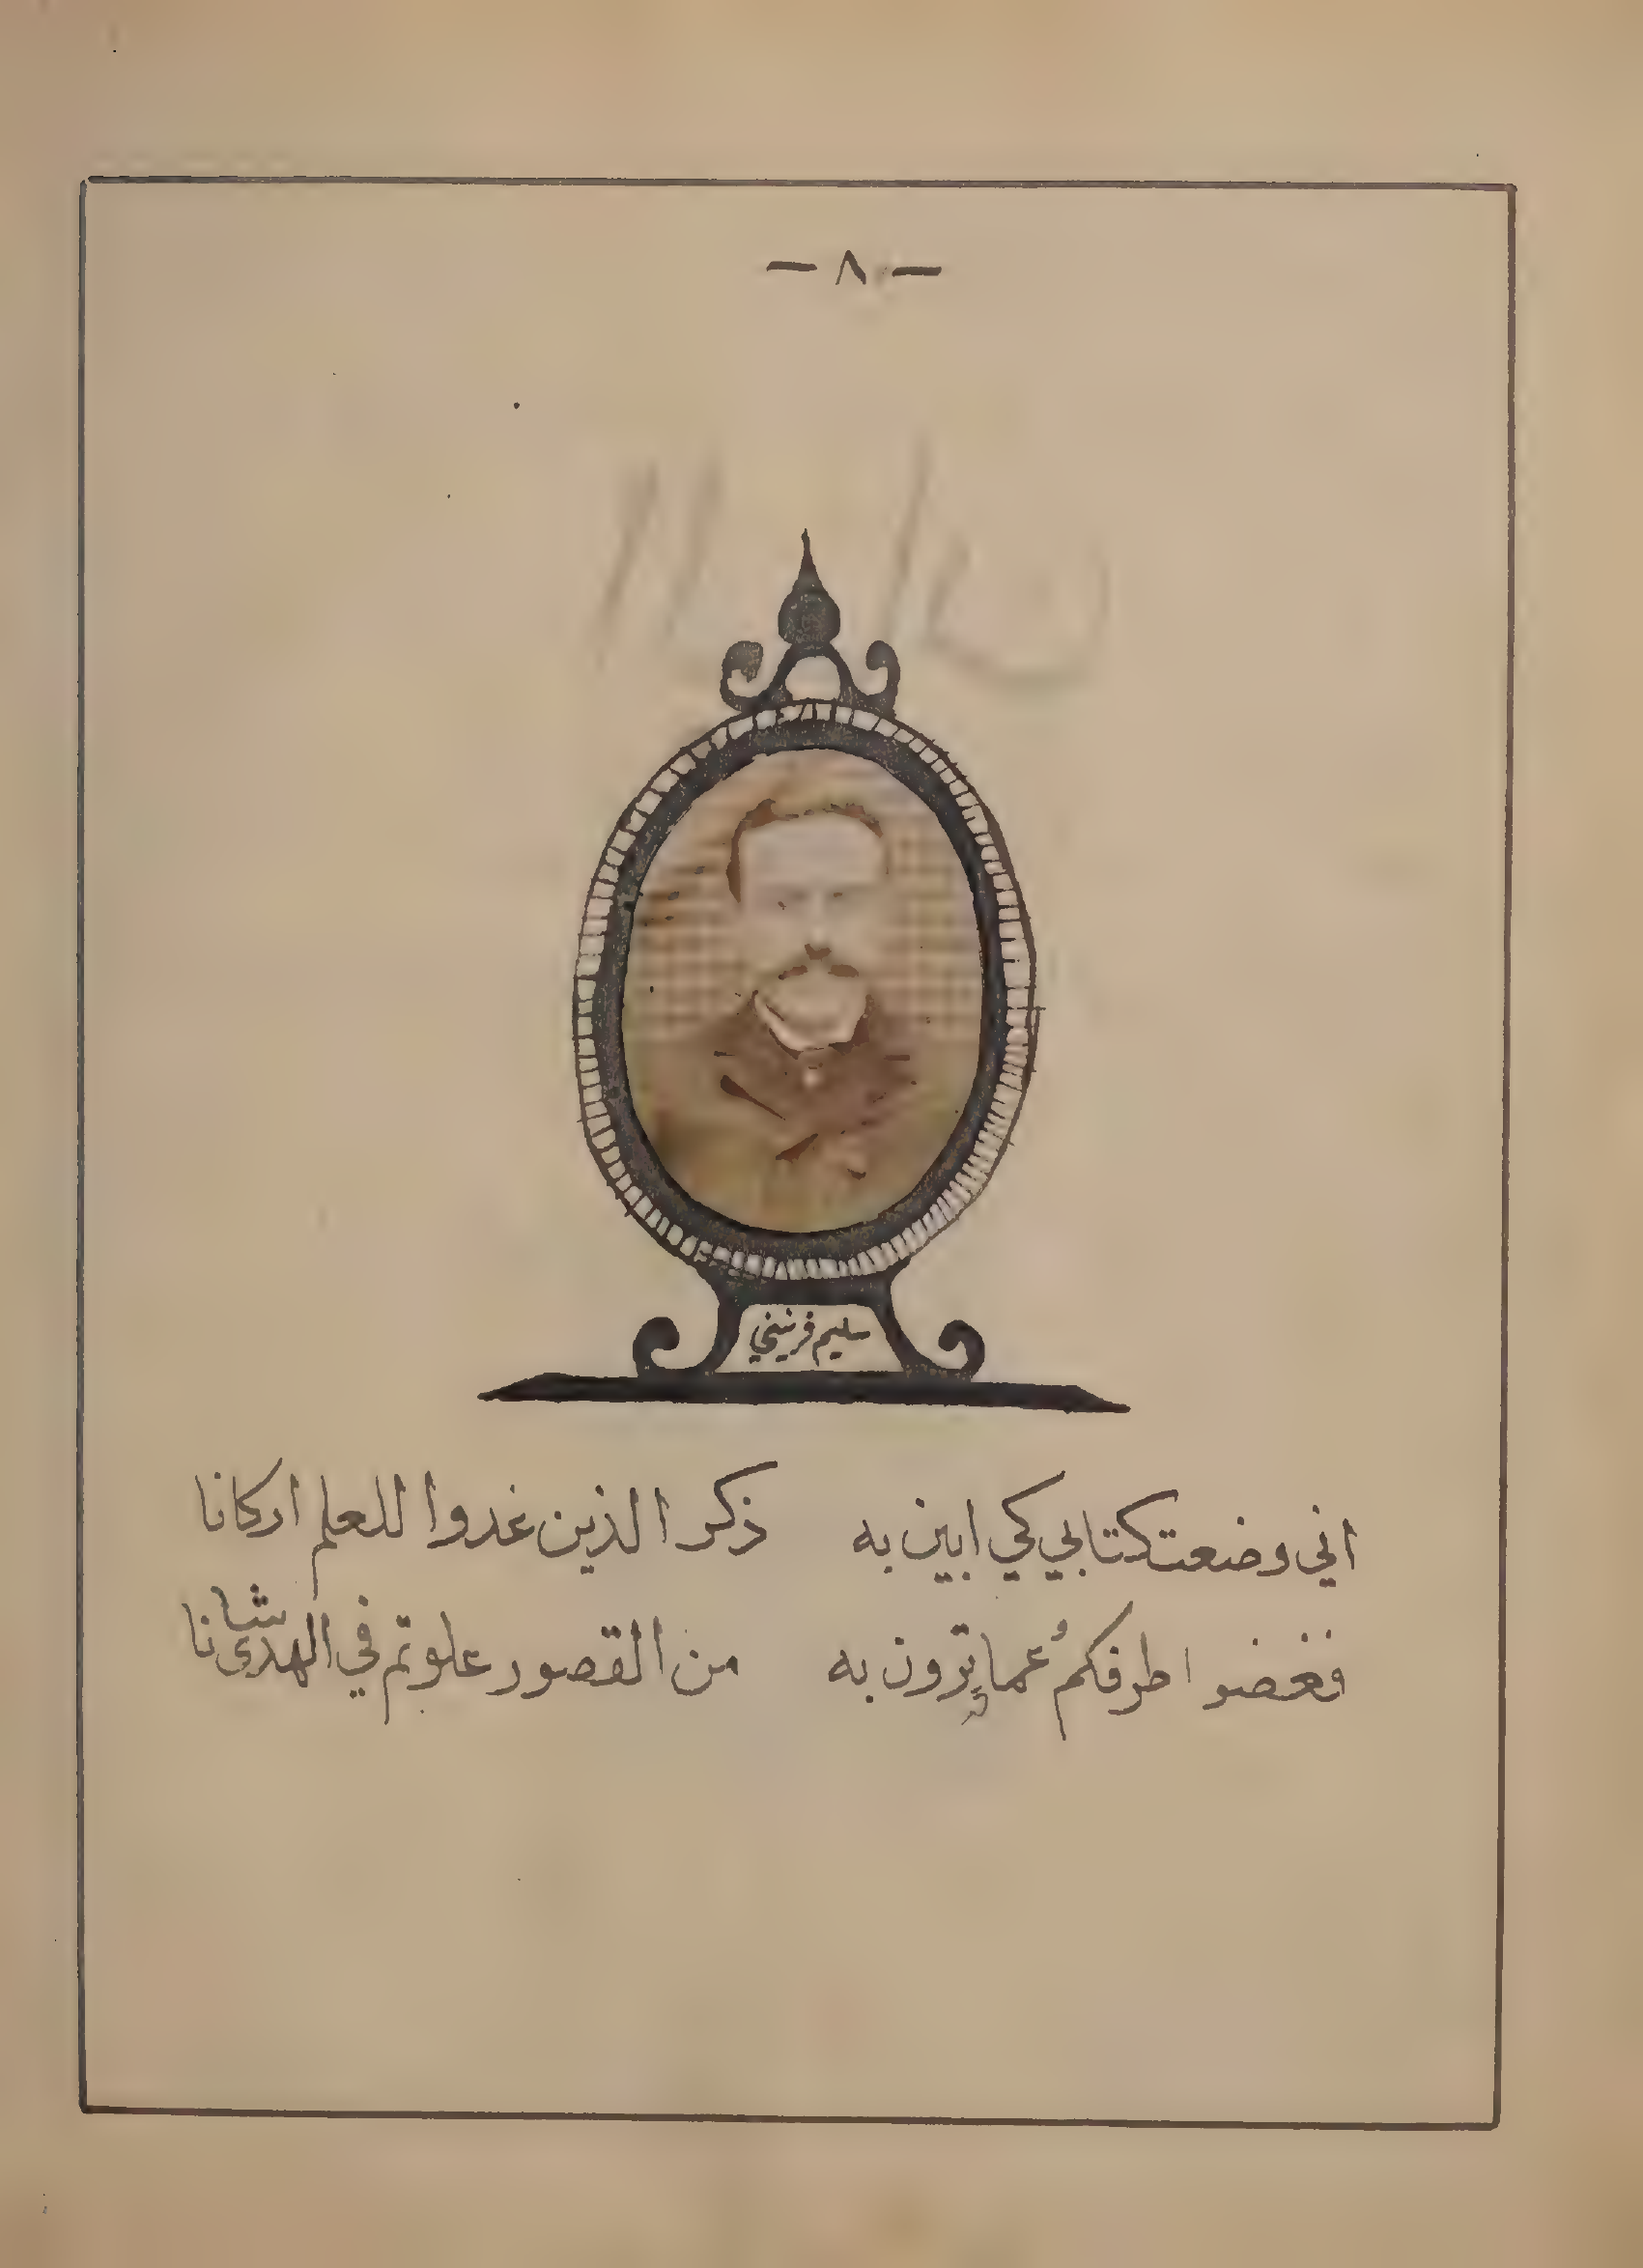 — ٨ —
سليم فرنيني
اني وضعت كتابي كي ابين به ذكر الذين غدوا للعلم اركانا
فغضوا طرفكمُ عما ترون به من القصور علوتم في الهدى شانا